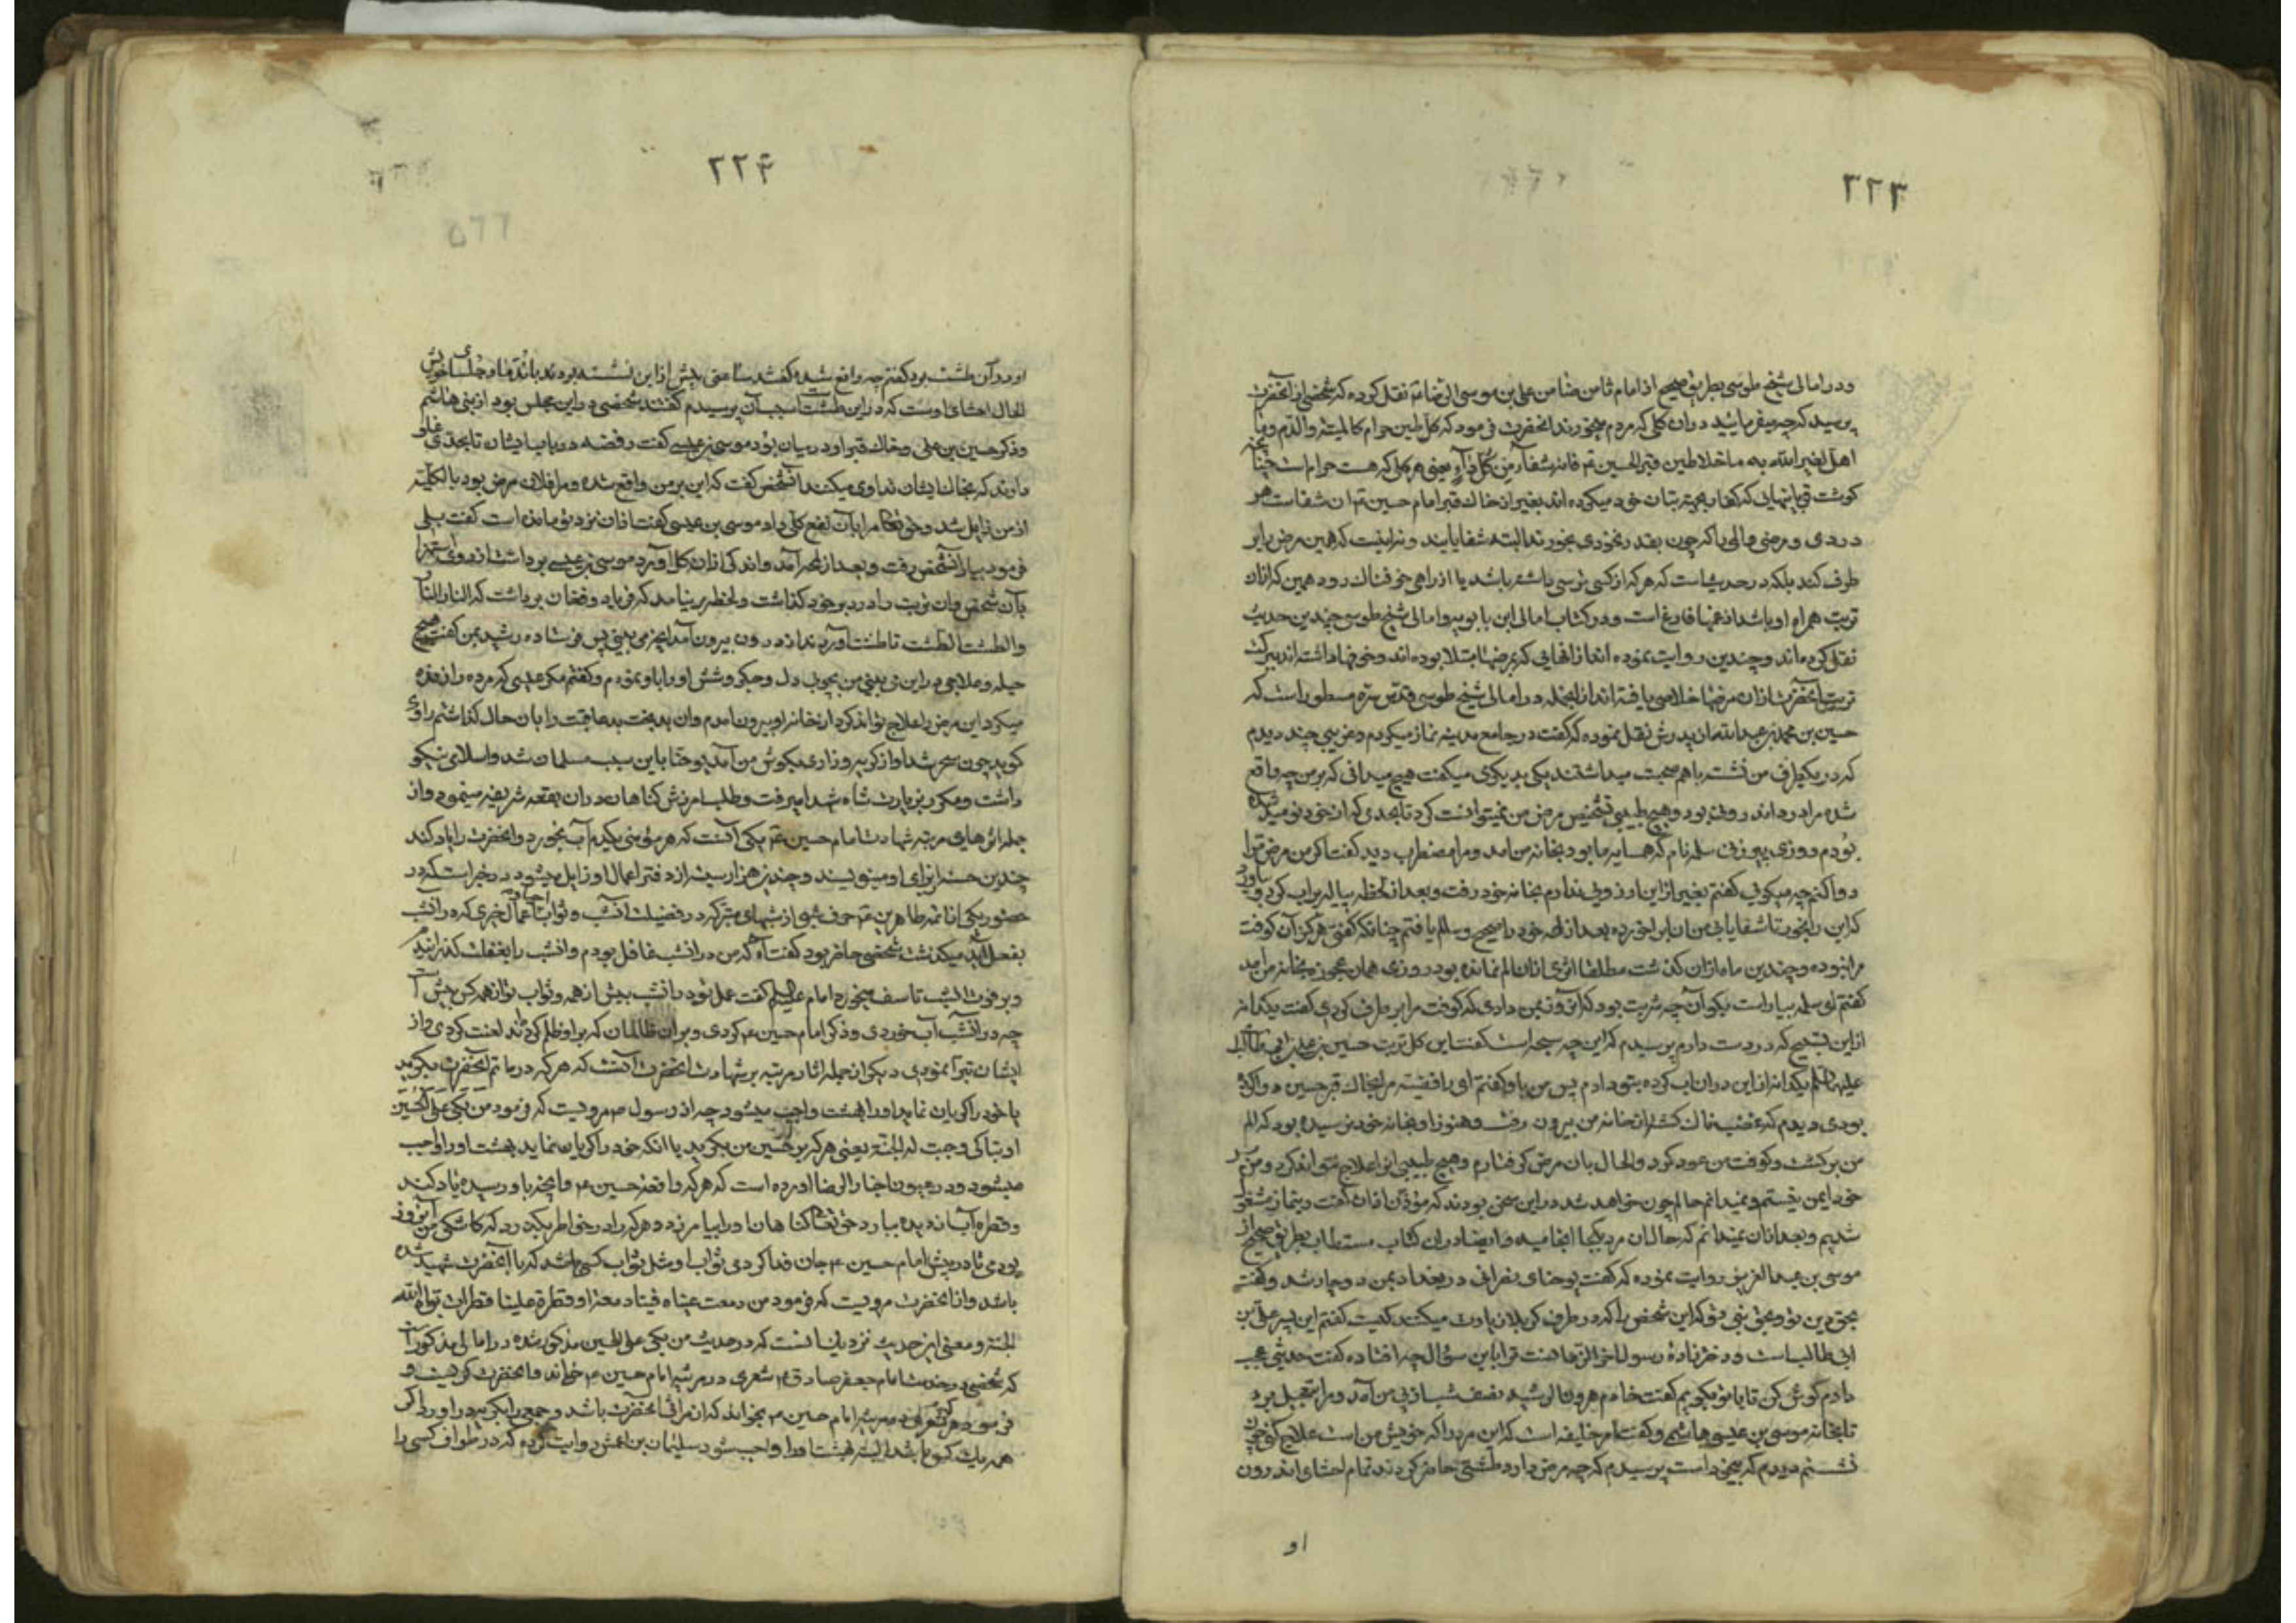 ٢٢٣
ودر امالی شیخ طوسی بطریق صحیح از امام ثامن ضامن علی بن موسی الرضا ع نقل کرده که شخصی از آنحضرت
پرسید که چه میفرمایید در آن کلی که مردم میخورند آنحضرت فرمود که کل طین حرام کالمیتة والدم وما
اهل لغیر الله به ما خلا طین قبر الحسین ع فانه شفاء من کل داء یعنی هر کلی که هست حرام است چنانچه
گوشت قربانیهایی که کفار بجهة بتان خود میکرده اند بغیر از خاک قبر امام حسین ع که آن شفاست هر
دردی و مرضی والی را که چون بقدر نخودی بخورند البته شفا یابند و نه اینست که همین مرض را بر
طرف کند بلکه در حدیث است که هر که از کسی ترسی داشته باشد یا از راهی خوفناک رود همین که از آن
تربت همراه او باشد از غمها فارغ است ودر کتاب امالی ابن بابویه و امالی شیخ طوسی چندین حدیث
نقل کرده اند و چندین روایت نموده اند از آنهایی که بمرضها مبتلا بوده اند و خوفها داشته اند ببرکت
تربت آنحضرت از آن مرضها خلاصی یافته اند از آنجمله در امالی شیخ طوسی قدس سره مسطور است که
حسین بن محمد بن عبدالله از پدرش نقل نموده که گفت در جامع مدینه نماز میکردم و غریبی چند دیدم
که در یکطرف من نشسته با هم صحبت میداشتند یکی بدیکری میکفت هیچ میدانی که بر من چه واقع
شده مرا درد اندرونی بود و هیچ طبیبی تشخیص مرض من نمیتوانست کرد تا بحدی که از خود نومید شده
بودم روزی پیرزنی سلمه نام که همسایه ما بود بخانه من آمد و مرا مضطرب دید گفت اگر من مرض ترا
دوا کنم چه میکوئی کفتم بغیر از این آرزویی ندارم بخانه خود رفت و بعد از لحظه پیاله پر آب کرده بیاورد
که این را بخور تا شفا یابی من آن را بخورده بعد از لمحه خود را صحیح و سالم یافتم چنانکه کفتی هرگز آن کوفت
مرا نبوده و چندین ماه از آن گذشت مطلقا اثری از آن الم نمانده بود روزی همان عجوزه بخانه من آمد
کفتم ای سلمه بیا راست بگو آن چه شربت بود که آنروز بمن دادی که کوفت مرا بر طرف کردی گفت یکدانه
از این تسبیح که در دست دارم پرسیدم که این چه سبحه است گفت این کل تربت حسین بن علی بن ابی طالب
علیهما السلم یکدانه از این در آن آب کرده بتو دادم پس من باو گفتم ای رافضیه مرا بخاک قبر حسین دوا کرده
بودی دیدم که غضبناک کشته از خانه من بیرون رفت و هنوز او بخانه خود نرسیده بود که الم
من برکشت و کوفت من عود کرد و الحال بآن مرض گرفتارم و هیچ طبیبی آنرا علاج نمیتواند کرد و من بر
خود ایمن نیستم و نمیدانم حالم چون خواهد شد در این سخن بودند که مؤذن اذان گفت و بنماز مشغول
شدیم و بعد از آن نمیدانم که حال آن مرد بکجا انجامیده و ایضا در آن کتاب مستطاب بطریق صحیح از
موسی بن عبدالعزیز روایت نموده که گفت یوحنای نصرانی در بغداد بمن دوچار شد و گفت
بحق دین تو و بحق نبی تو که این شخص را که در طرف کربلا زیارت میکنند کیست کفتم این پسر علی بن
ابی طالب است و دخترزادۀ رسول آخرالزمانست ترا باین سؤال چه افتاده گفت حدیثی عجب
دارم گوش کن تا با تو بگویم گفت خادم هرون الرشید نصف شب از پی من آمد و مرا بتعجیل برد
تا بخانه موسی بن عیسی هاشمی و گفت امر خلیفه است که این مرد را که خویش من است علاج کنی چون
نشستم دیدم که بیخود است پرسیدم که چه مرض دارد طشتی حاضر کردند تمام احشای اندرون
او
٢٢۴
او در آن طشت بود کفتم چه واقع شده گفتند ساعتی پیش از این نشسته بود با ندما و جلسای خویش
الحال احشای اوست که در این طشت است سبب آن پرسیدم گفتند شخصی در این مجلس بود از بنی هاشم
وذکر حسین بن علی و خاک قبر او در میان بود موسی بن عیسی گفت رفضه در باب ایشان تا بحدی غلو
دارند که بخاک ایشان تداوی میکنند آنشخص گفت که این بر من واقع شده و مرا فلان مرض بود بالکلیه
از من زایل شد و حق تعالی مرا بآن نفع کلی داد موسی بن عیسی گفت از آن نزد تو مانده است گفت بلی
فرمود بیار آنشخص رفت و بعد از لمحه آمد و اندکی از آن کل آورد موسی بن عیسی برداشت از روی استهزا
بآن شخص و آن تربت را در دبر خود گذاشت و لحظه برنیامد که فریاد و فغان برداشت که النار النار
والطشت الطشت تا طشت آوردند از درون بیرون آمد آنچه می بینی پس فرستاده رشید بمن گفت هیچ
حیله و علاجی در این می بینی من بچوب دل و جگر و شش او را باو نمودم و کفتم مگر عیسی که مرده را زنده
میکرد این مرض را علاج تواند کرد از خانه او بیرون آمدم و آن بدبخت بد عاقبت را بآن حال گذاشتم راوی
گوید چون سحر شد آواز گریه و زاری بگوش من آمد یوحنا باین سبب مسلمان شد و اسلامی نیکو
داشت و مکرر بزیارت شاه شهدا میرفت و طلب آمرزش گناهان در آن بقعه شریفه مینمود و از
جمله اثرهای مرتبه شهادت امام حسین ع یکی آنست که هر مؤمنی یکدم آب بخورد و آنحضرت را یاد کند
چندین حسنه برای او مینویسند و چندین هزار سیئه از دفتر اعمال او زایل میشود در خبر است که در
حضور یکی از ائمه طاهرین ع حرف شبی از شبهای متبرکه در فضیلت آنشب و ثواب احیا و اعمال خیری که در آنشب
بفعل آید میگذشت شخصی حاضر بود گفت آه که من در آنشب غافل بودم و آنشب را بغفلت گذرانیدم
و بر فوت آنشب تاسف میخورد امام علیه السلم گفت عمل تو در آنشب بیش از همه و ثواب تو از همه کس بیش است
چه در آنشب آب خوردی و ذکر امام حسین ع کردی و بر آن ظالمان که بر او ظلم کردند لعنت کردی و از
ایشان تبرا نمودی دیگر از جمله آثار مرتبه بر شهادت آنحضرت آنست که هر که در ماتم آنحضرت بگرید
یا خود را گریان نماید او را بهشت واجب میشود چه از رسول ص مرویست که فرمود من بکی علی الحسین
او تباکی وجبت له الجنة یعنی هر که بر حسین من بگرید یا آنکه خود را گریا بنماید بهشت او را واجب
میشود و در عیون اخبار الرضا آورده است که هر که واقعه حسین ع و آنچه باو رسیده یاد کند
و قطره آب از دیده ببارد حق تعالی گناهان او را بیامرزد و هر که را در خاطر بگذرد که کاشکی من آنروز
بودمی تا در پیش امام حسین ع جان فدا کردمی ثواب او مثل ثواب کسی باشد که با آنحضرت شهید شده
باشد و از آنحضرت مرویست که فرمود من دمعت عیناه فینا دمعة او قطرة علینا قطرات بواه الله
الجنة و معنی این حدیث نزدیک بآنست که در حدیث من بکی علی الحسین مذکور شده در امالی مذکور است
که شخصی در خدمت امام جعفر صادق ع شعری در مرثیه امام حسین ع خواند و آنحضرت گریست و
فرمود هر که شعری در مرثیه امام حسین ع بخواند که از مراثی آنحضرت باشد و جمعی را بگریه درآورد اگر
همه یک کس باشد البته بهشت او را واجب شود سلیمان بن اعمش روایت کرده که در طواف کسی را